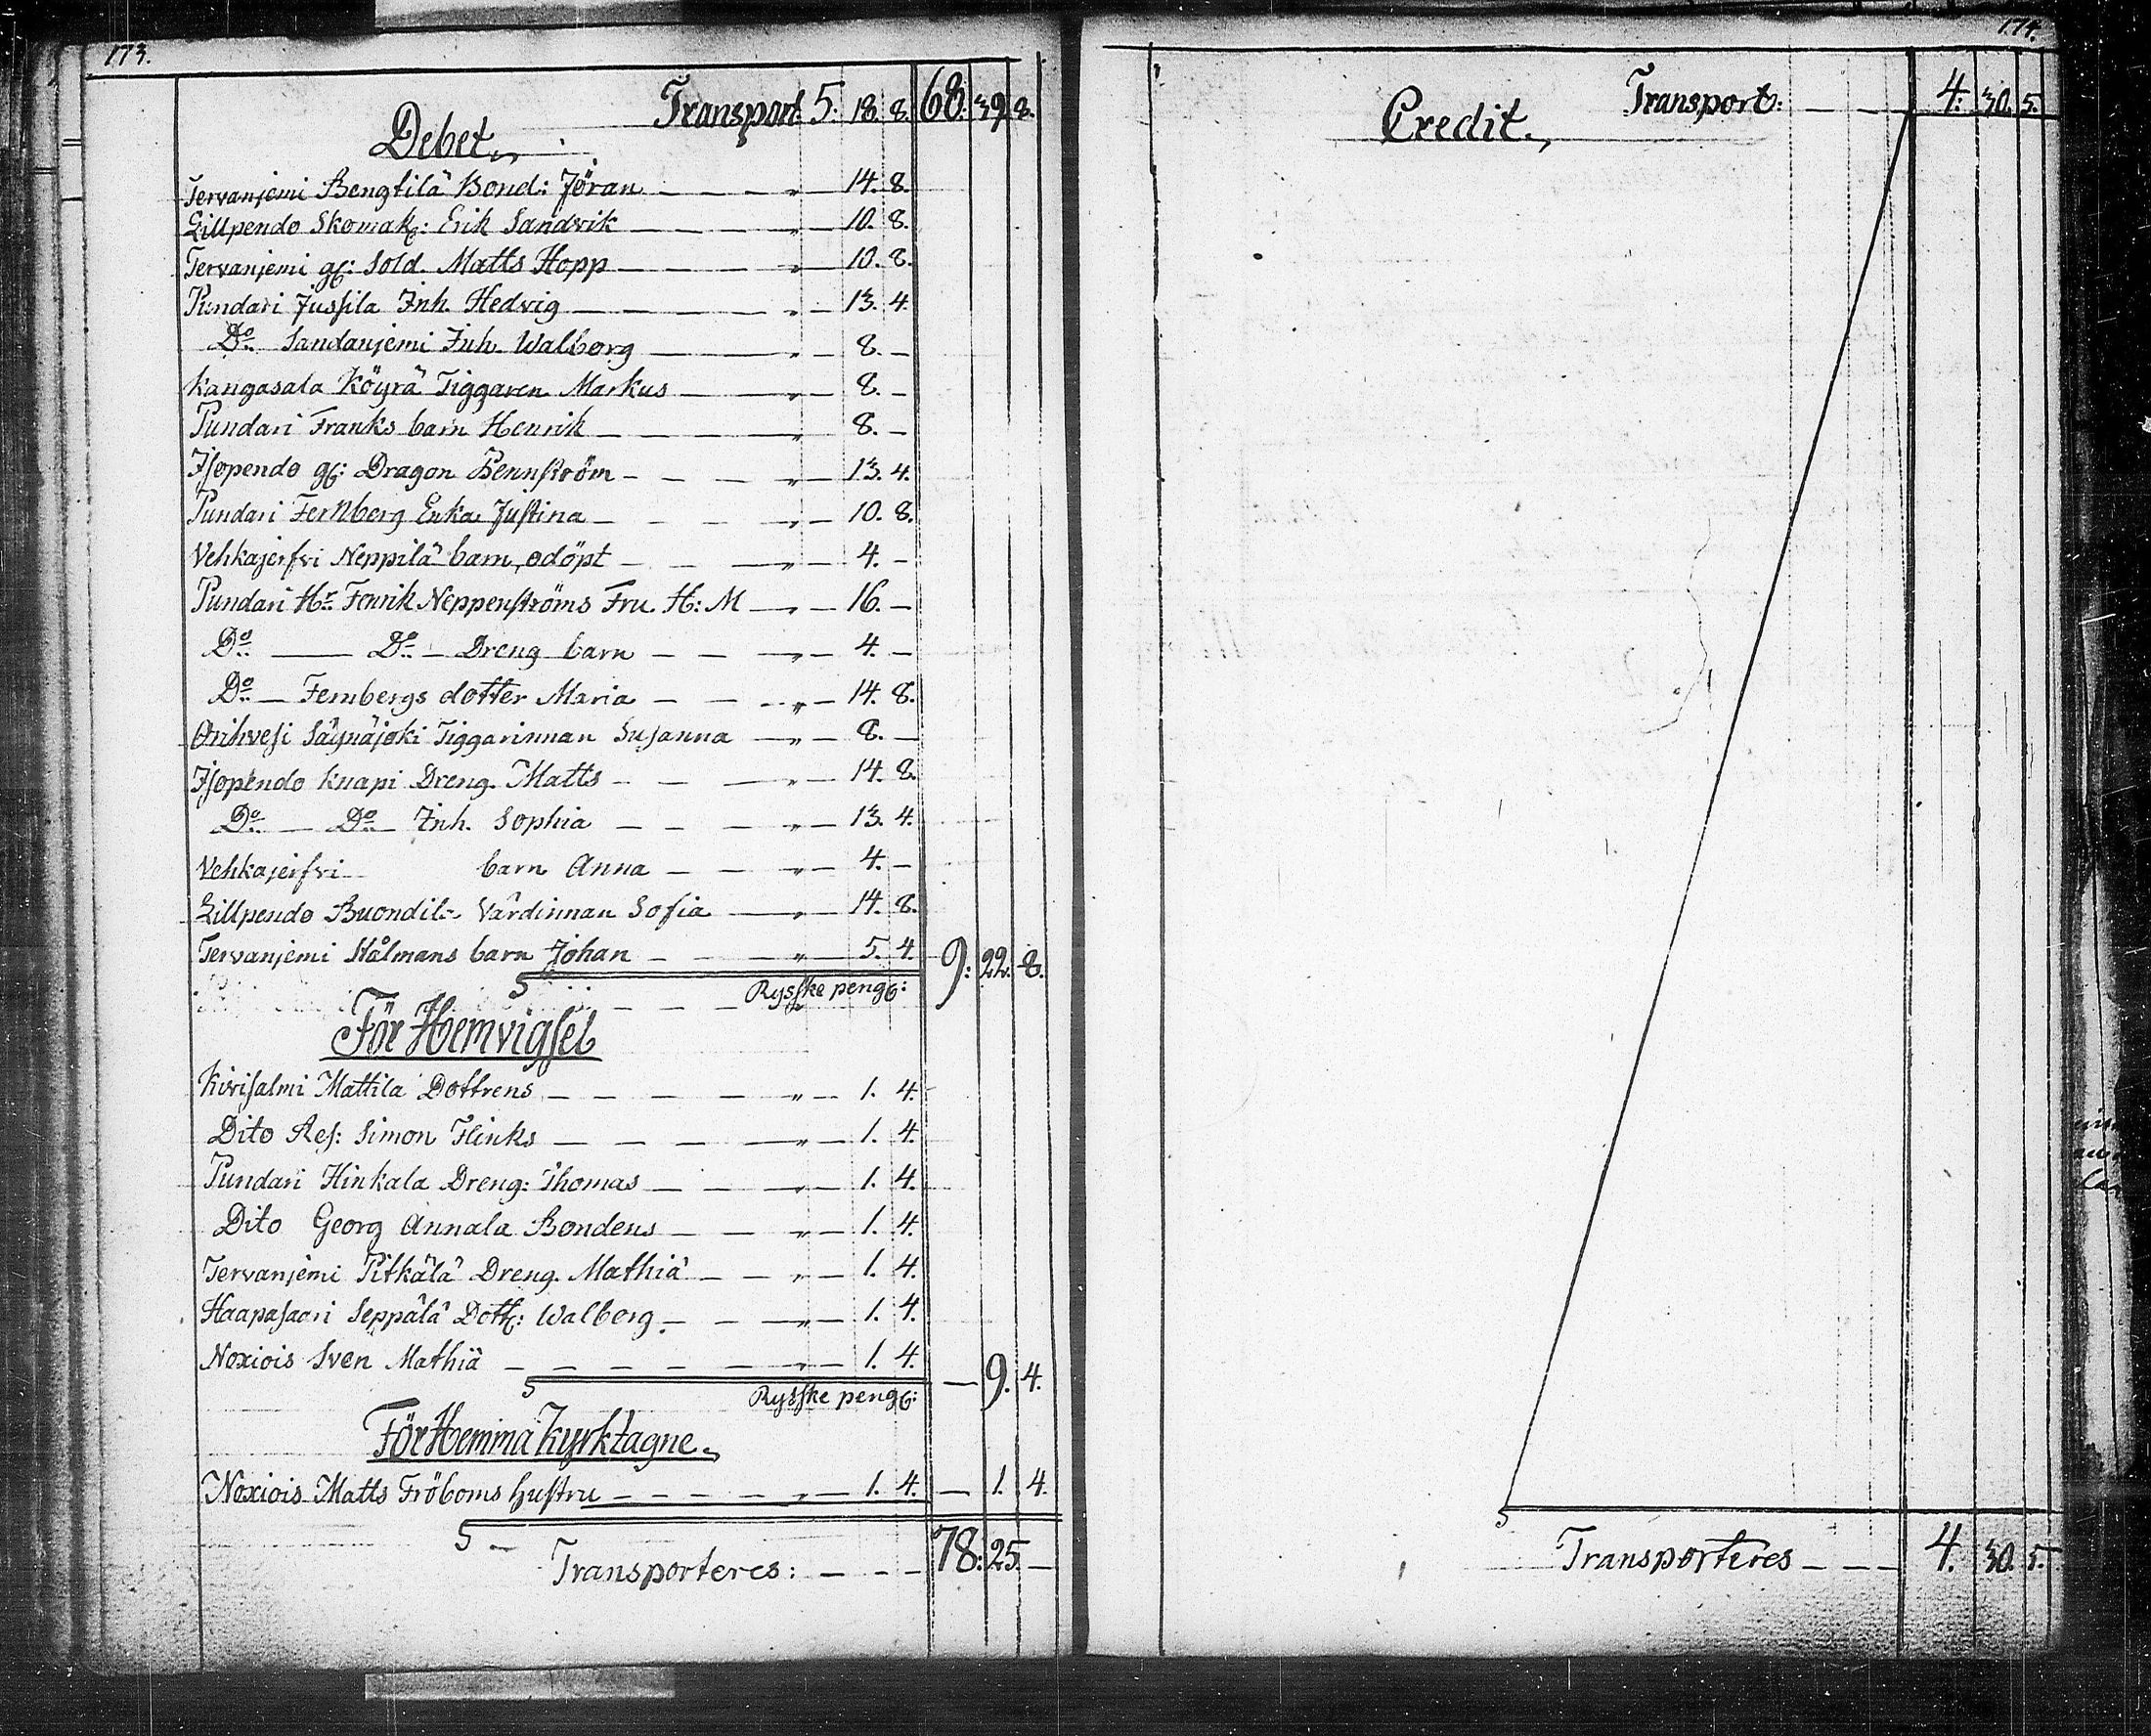 173.
Transport 5. 18. 8. 68. 39. 8.
Debet.
Tervanjemi Bengtilä Bond: Jöran — — — „ — 14. 8.
Lillpendo Skomak: Erik Sandvik — — — „ — 10. 8.
Tervanjemi gl: Sold. Matts Hopp — — — „ — 10. 8.
Pundari Jussila Inh. Hedvig — — — — „ — 13. 4.
Do. Sandanjemi Inh. Walborg — — „ — 8. —
Kangasala Köyrä Tiggaren Markus — — „ — 8. —
Pundari Franks barn Henrik — — — — „ 8. —
Isopendo gl: Dragon Bennström — — — „ — 13. 4.
Pundari Fernberg Enka Justina — — — „ — 10. 8.
Vehkajerfvi Neppilä barn, odöpt — — — „ — 4. —
Pundari Hr. Fenrik Neppenströms Fru. H: M — „ — 16. —
Do. — Do. — Dreng barn — — — „ — 4. —
Do. — Fernbergs dotter Maria — — — „ — 14. 8.
Orihvesi Säynäjoki Tiggarinnan Susanna — „ — 8. —
Isopendo Knapi Dreng. Matts — — — „ — 14. 8.
Do. — Do. Inh. Sophia — — — „ — 13. 4.
Vehkajerfvi barn Anna — — — „ — 4. —
Lillpendo Buondila Värdinnan Sofia — „ — 14. 8.
Tervanjemi Stålmans barn Johan — — „ — 5. 4. 9. 22. 8.
Rysske peng:
För Hemvigsel
Kirisalmi Mattila Dottrens — — — — „ — 1. 4.
Dito Ref: Simon Flinks — — — „ — 1. 4.
Pundari Hinkala Dreng: Thomas — — — „ — 1. 4.
Dito Georg Annala Bondens — — „ — 1. 4.
Tervanjemi Pitkälä Dreng. Mathiä — — „ — 1. 4.
Haapasaari Seppälä Dott: Walborg — — „ — 1. 4.
Noxiois Sven Mathiä — — — — — „ — 1. 4. — 9. 4.
Rysske peng:
För Hemma Kyrktagne.
Noxiois Matts Fröboms hustru — — — — „ — 1. 4. — 1. 4.
Transporteres: — — — 78. 25. —
174.
Transport: — — — 4. 30. 5.
Credit.
Transporteres — — — 4. 30. 5.